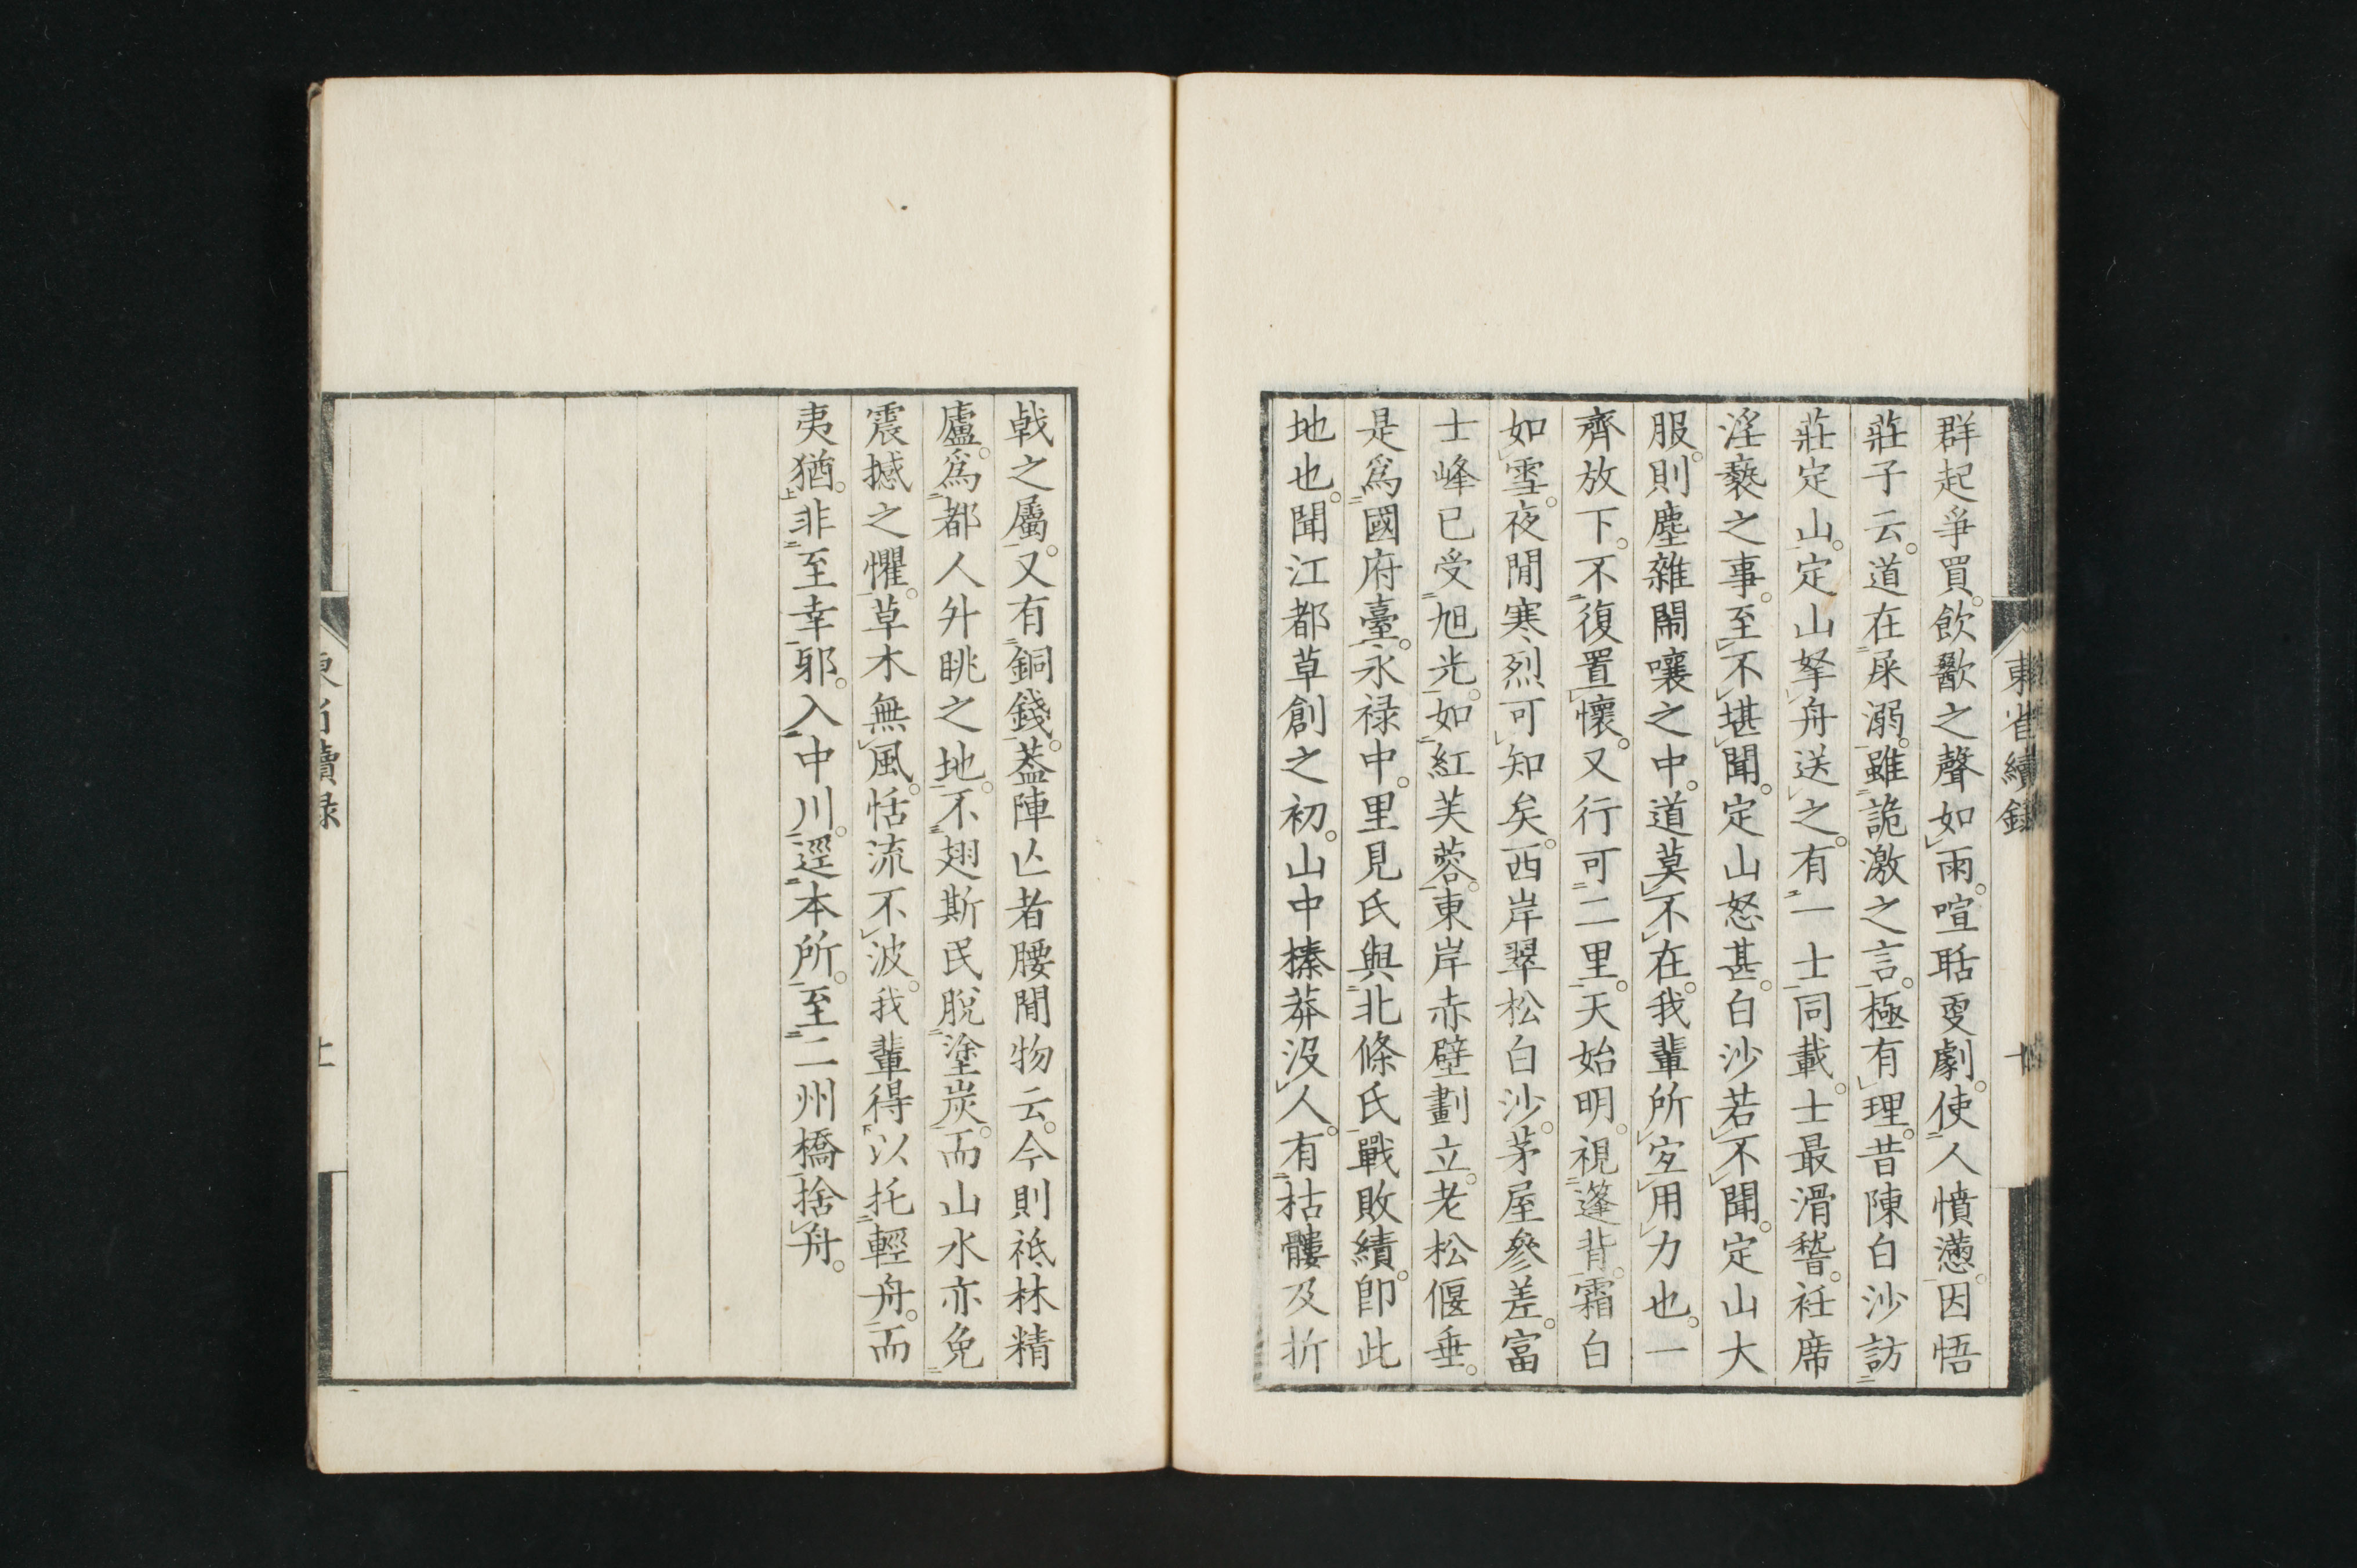 群起爭買。飲歠之聲如雨。喧聒耍劇。使人憤懣。因悟
莊子云。道在屎溺。雖詭激之言。極有理。昔陳白沙訪
莊定山。定山拏舟送之。有一士同載。士最滑稽。袵席
淫褻之事。至不堪聞。定山怒甚。白沙若不聞。定山大
服。則塵雜鬧嚷之中。道莫不在。我輩所宜用力也。一
齊放下。不復置懷。又行可二里。天始明。視篷背。霜白
如雪。夜閒寒烈可知矣。西岸翠松白沙。茅屋參差。富
士峰已受旭光。如紅芙蓉。東岸赤壁劃立。老松偃垂。
是爲國府臺。永禄中。里見氏與北條氏戰敗績。卽此
地也。聞江都草創之初。山中榛莽没人。有枯髏及折
戟之屬。又有銅錢。葢陣亾者腰閒物云。今則祗林精
廬。爲都人升眺之地。不翅斯民脫塗炭。而山水亦免
震撼之懼。草木無風。恬流不波。我輩得以托輕舟。而
夷猶。非至幸邪。入中川。逕本所。至二州橋捨舟。